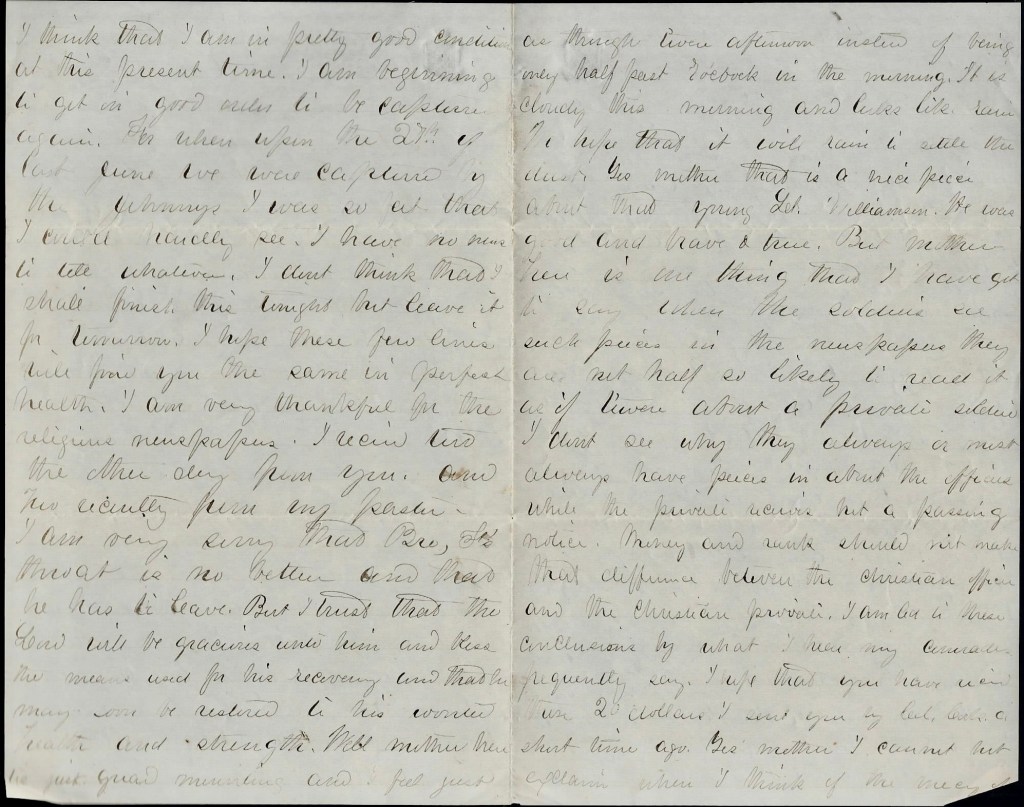 I think that I am in pretty good condition
at this present time. I am beginning
to get in good order to be capture
again. For when upon the 27th of
last June we were capture by
the Johnnys I was so at that
I could hardly see. I have no news
to tell whatever. I dont think that I
shall finish this tonight but leave it
for tomorrow. I hope these few lines
will find you the same in perfect
health. I am very thankful for the
religins newspapers. I reciv two
the other day from you. and
two recently from my pastor.
I am very sorry that Bro,
throat is no better and that
he has to leave. But I trust that the
Lord will be gracious unto him and bless
the means used for his recovery and that he
may soon be restored to his wonted
health and strength. Well mother here
is just guard mounting and I feel just
as though twere afternoon insted of being
only half past 8 oclock in the morning. It is
cloudy this morning and looks like rain
I hope that it will rain to settle the
dust. Yes mother that is a nice piece
about that young Let. Williamson. He was
good and brave & true. But mother
here is one thing that I have got
to say when the soldiers see
such pieces in the newspapers they
are not half so likely to read it
as if twere about a private soldier
I dont see why they always or most
always have peices in about the officers
while the private receivs but a passing
notice. Money and rank should not make
that diffirence between the christian officer
and the christian private. I am led to these
conclusions by what I hear my comrades
frequently say. I hope that you have reciv
them 20 dollars I sent you by a
short time ago. Yes mother I cannot but
exclaim when I think of the mercy of